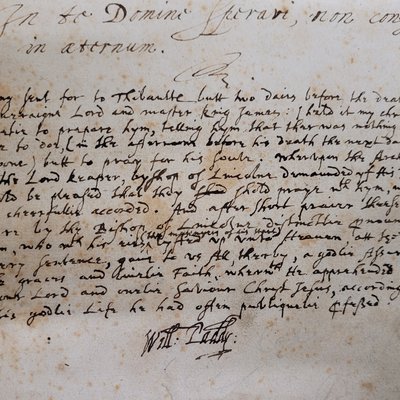 In te Domine speravi, non con
in æternum.
ng sent for to Thibaulte butt two daies before the deat
Soveraigne Lord and master King James: I held it my chri
to prepare hym, telling hym that ther was nothing
to doe, (in the afternoone before his death the next daie
one) butt to praye for his soule. Whereupon the Arch
the Lord Keaper, byshop of Lincolne demaunded yf his
be pleased that they shold praye wth hym,
cheerfullie accorded. And after short praier these
by the Bishop of Lincolne distinctlie pronoun
, who wth his eies lifted up unto heaven, att the
very sentence, gave to us all therby, a godlie assur
graces and livelie Faith, wherwth He apprehended
Lord and onelie Saviour Christ Jesus, according
his godlie Life he had often publiquelie
Will: Paddy: